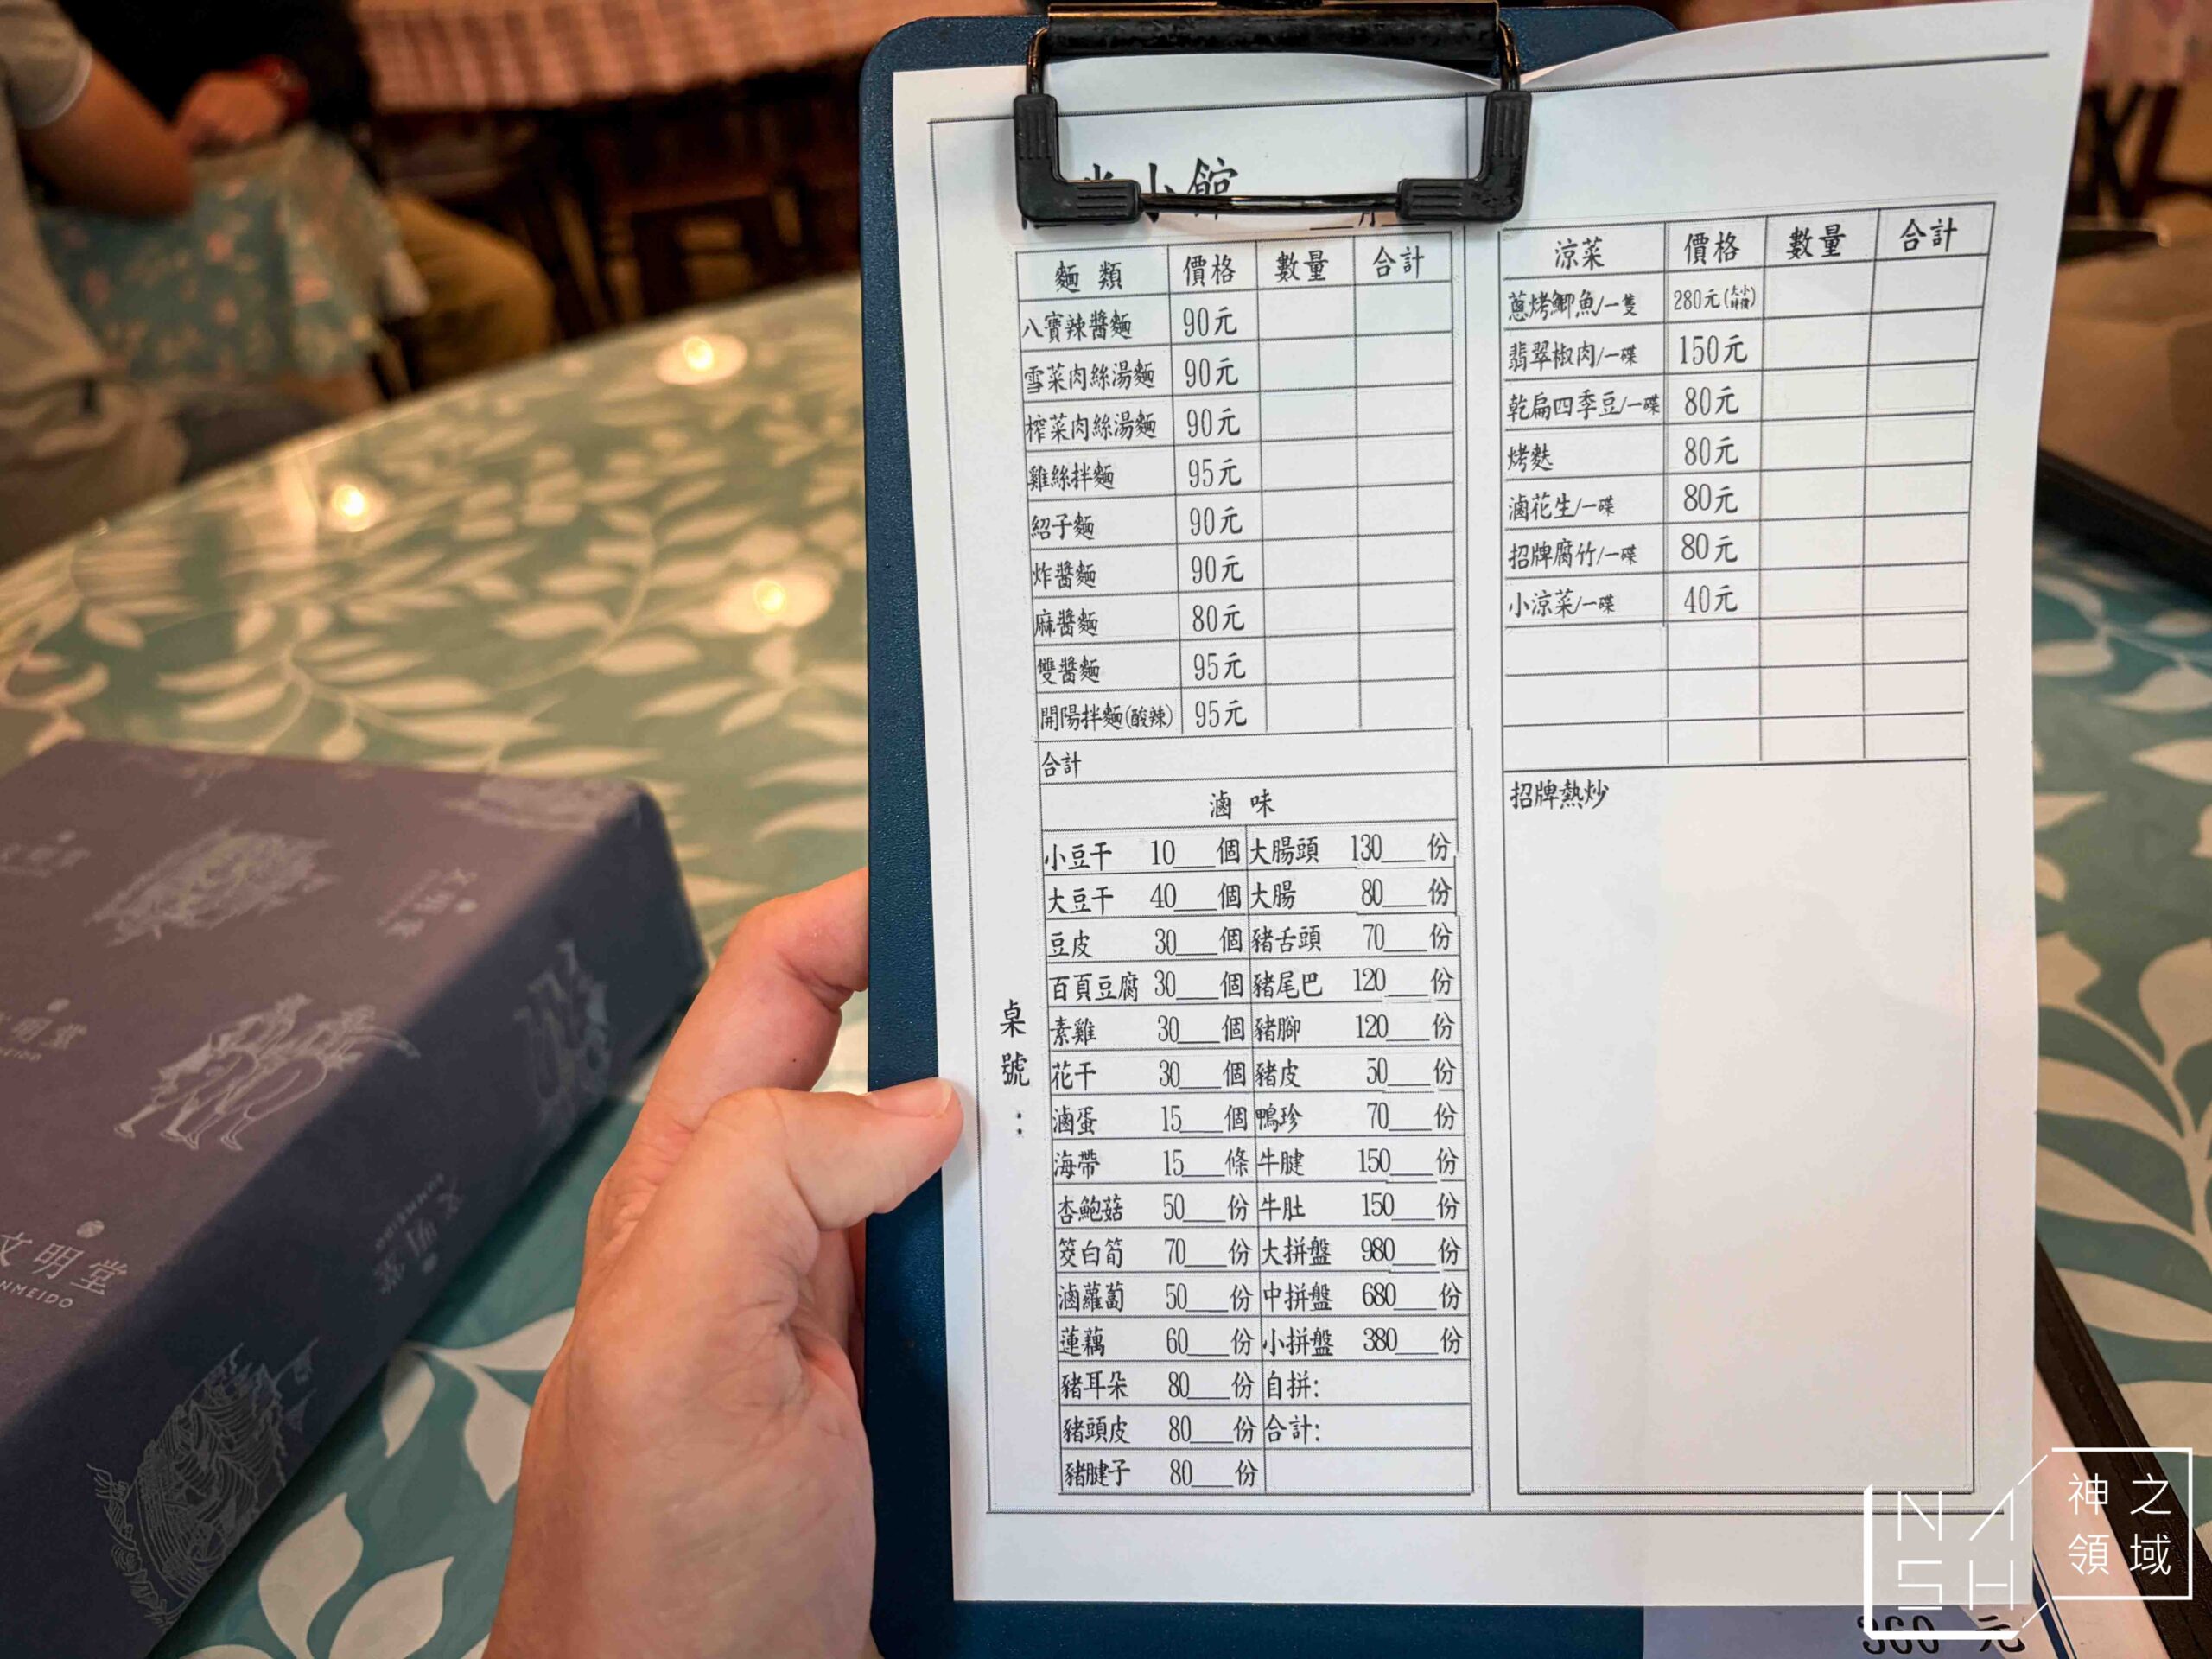 小館
月
麵 類 價格 數量 合計
八寶辣醬麵 90元
雪菜肉絲湯麵 90元
榨菜肉絲湯麵 90元
雞絲拌麵 95元
紹子麵 90元
炸醬麵 90元
麻醬麵 80元
雙醬麵 95元
開陽拌麵(酸辣) 95元
合計
滷 味
小豆干 10___個 大腸頭 130___份
大豆干 40___個 大腸 80___份
豆皮 30___個 豬舌頭 70___份
百頁豆腐 30___個 豬尾巴 120___份
素雞 30___個 豬腳 120___份
花干 30___個 豬皮 50___份
滷蛋 15___個 鴨珍 70___份
海帶 15___條 牛腱 150___份
杏鮑菇 50___份 牛肚 150___份
筊白筍 70___份 大拼盤 980___份
滷蘿蔔 50___份 中拼盤 680___份
蓮藕 60___份 小拼盤 380___份
豬耳朵 80___份 自拼:
豬頭皮 80___份 合計:
豬腱子 80___份
桌號:
涼菜 價格 數量 合計
蔥烤鯽魚/一隻 280元(大小時價)
翡翠椒肉/一碟 150元
乾扁四季豆/一碟 80元
烤麩 80元
滷花生/一碟 80元
招牌腐竹/一碟 80元
小涼菜/一碟 40元
招牌熱炒
文明堂
文明堂
360 元
NASH
神之
領域